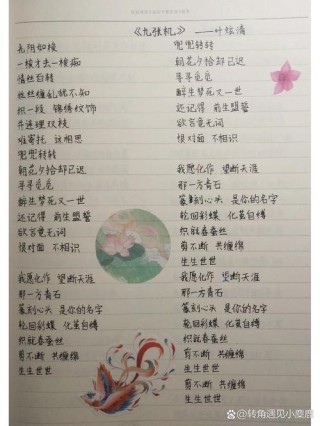 《九张机》——叶炫清
光阴如梭
一梭才去一梭痴
情丝自转
丝丝缠乱就不知
织一段 锦绣纹饰
并莲理双枝
难寄托 这相思
兜兜转转
朝花夕拾却已迟
寻寻觅觅
醉生梦死又一世
还记得 前生盟誓
欲言竟无词
恨对面 不相识
我愿化作 望断天涯
那一方青石
篆刻心头 是你的名字
轮回彩蝶 化茧自缚
织就春蚕丝
剪不断 共缠绵
生生世世
兜兜转转
朝花夕拾却已迟
寻寻觅觅
醉生梦死又一世
还记得 前生盟誓
欲言竟无词
恨对面 不相识
我愿化作 望断天涯
那一方青石
篆刻心头 是你的名字
轮回彩蝶 化茧自缚
织就春蚕丝
剪不断 共缠绵
生生世世
我愿化作 望断天涯
那一方青石
篆刻心头 是你的名字
轮回彩蝶 化茧自缚
织就春蚕丝
剪不断 共缠绵
生生世世
剪不断 共缠绵
生生世世
@转角遇见小鹿鹿